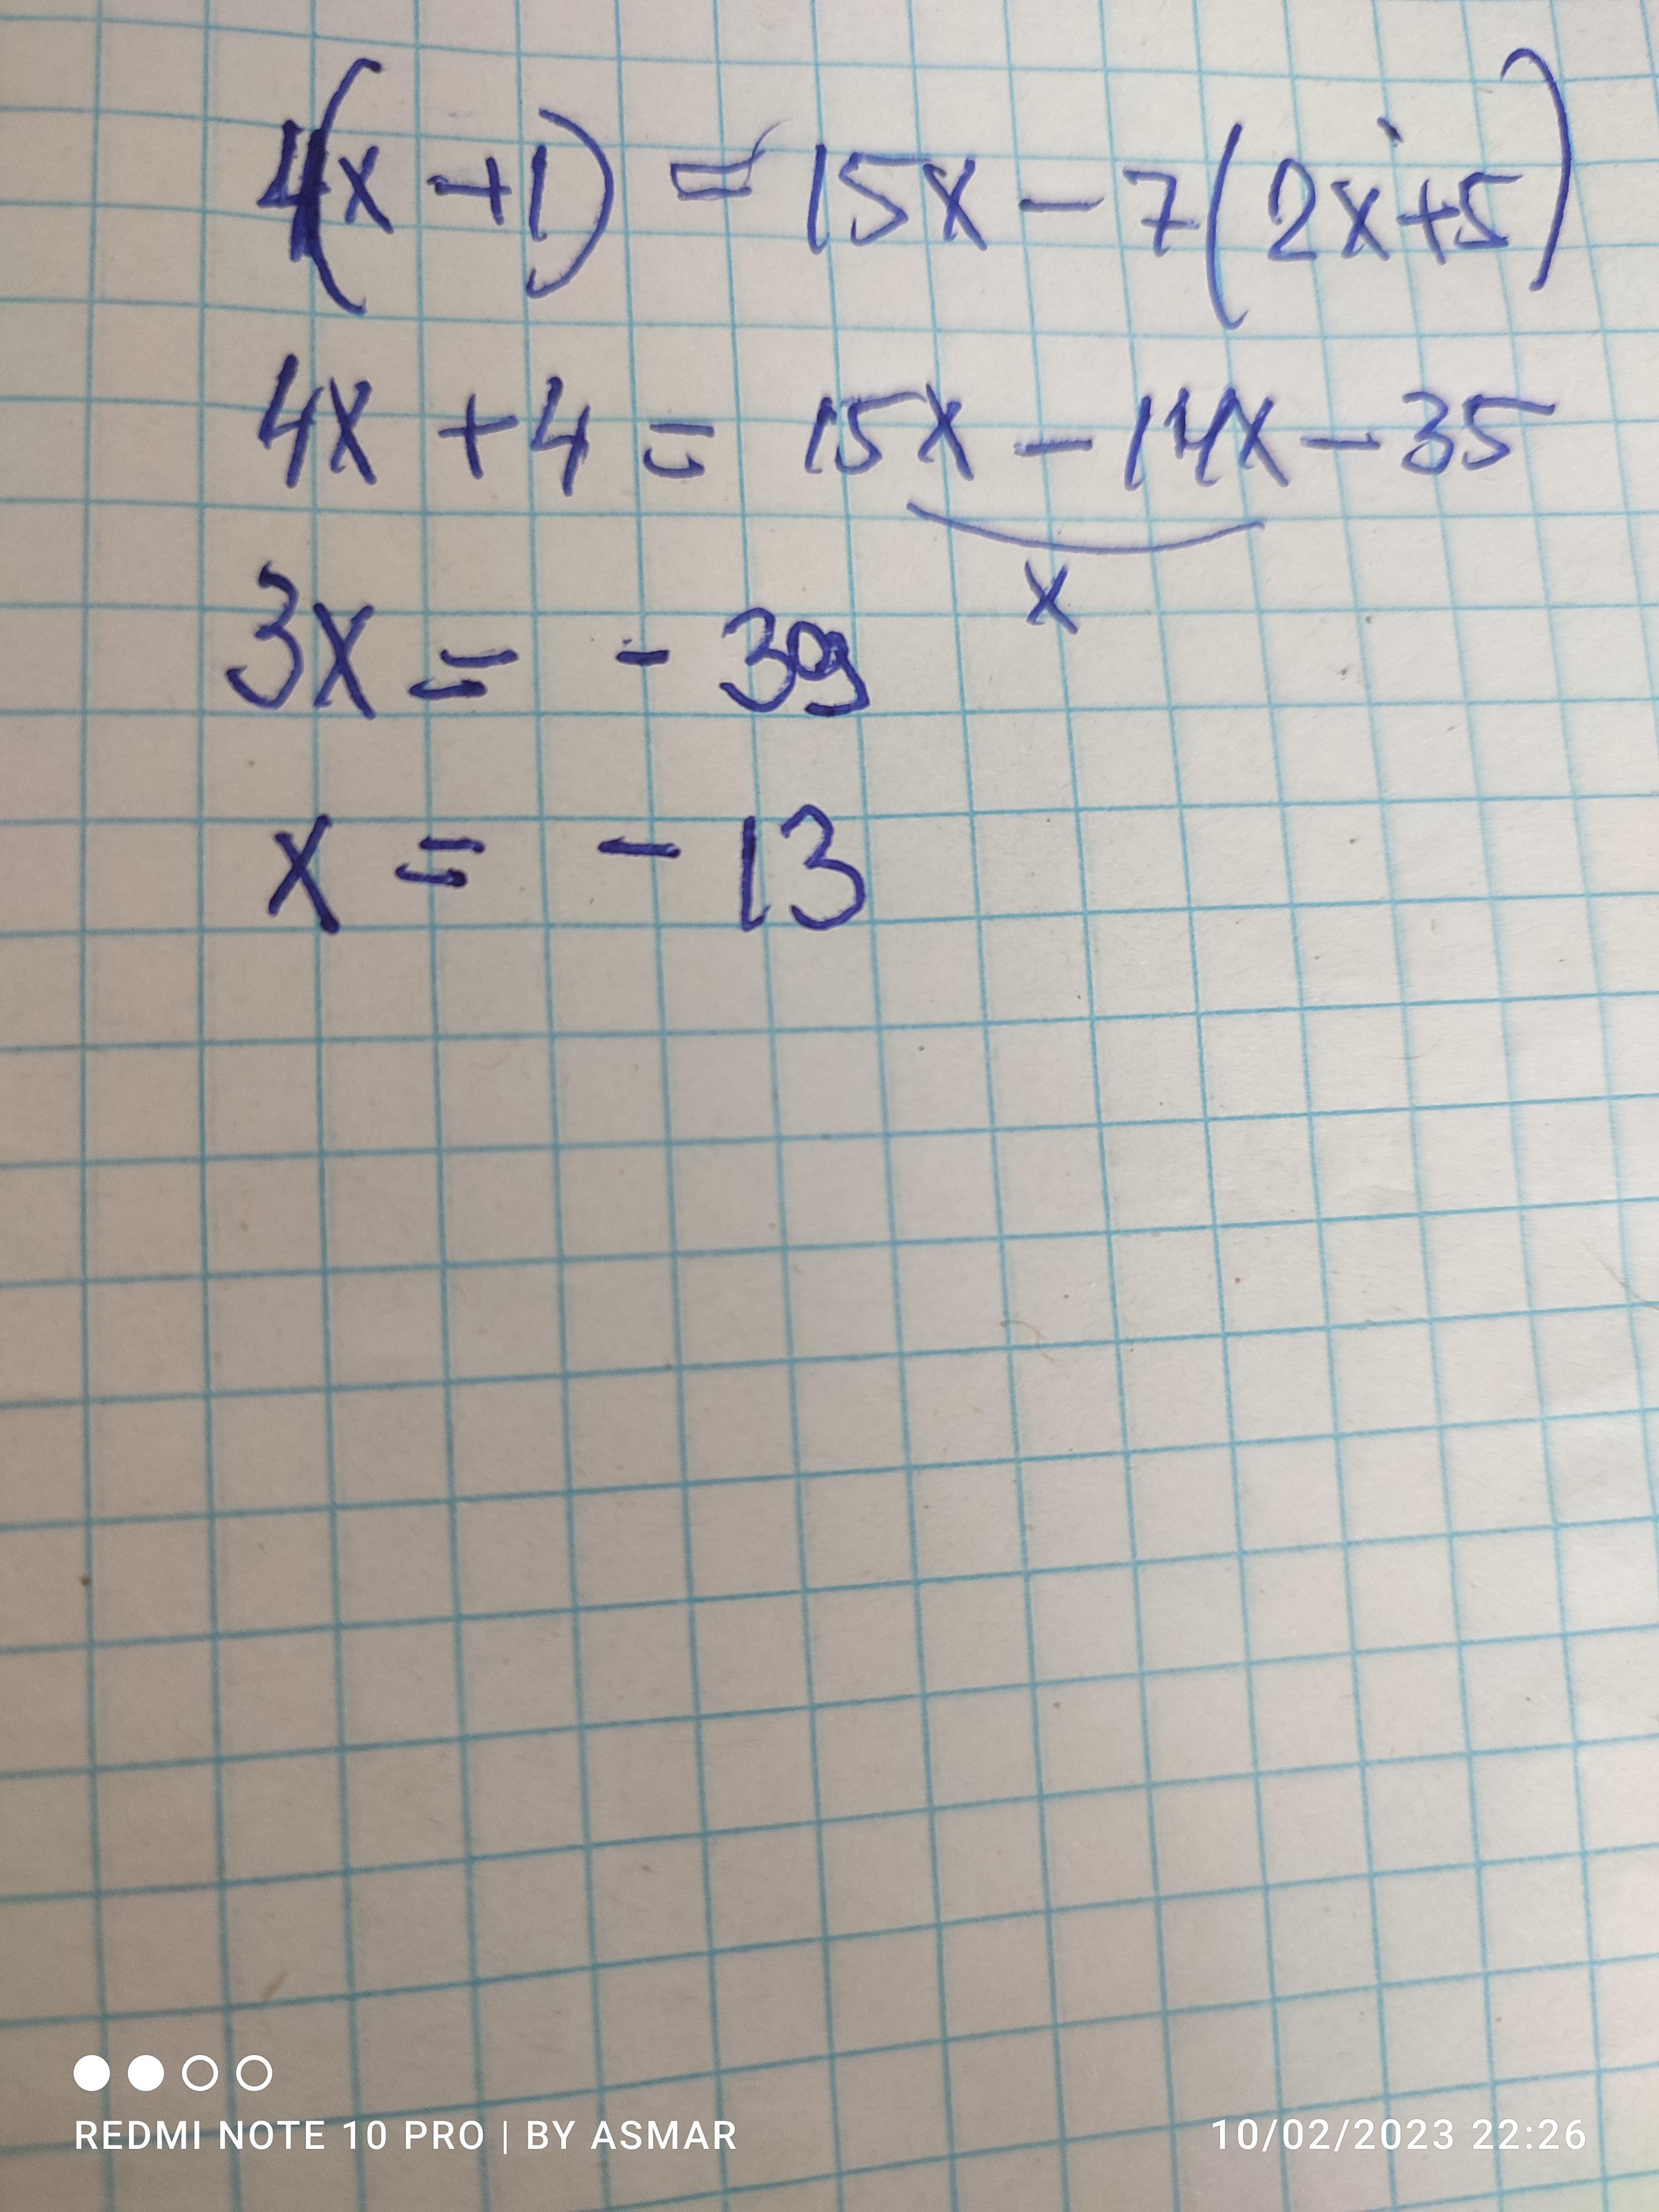 4(x+1) = 15x - 7(2x+5)
4x + 4 = 15x - 14x - 35
x
3x = - 39
x = - 13
REDMI NOTE 10 PRO | BY ASMAR
10/02/2023 22:26